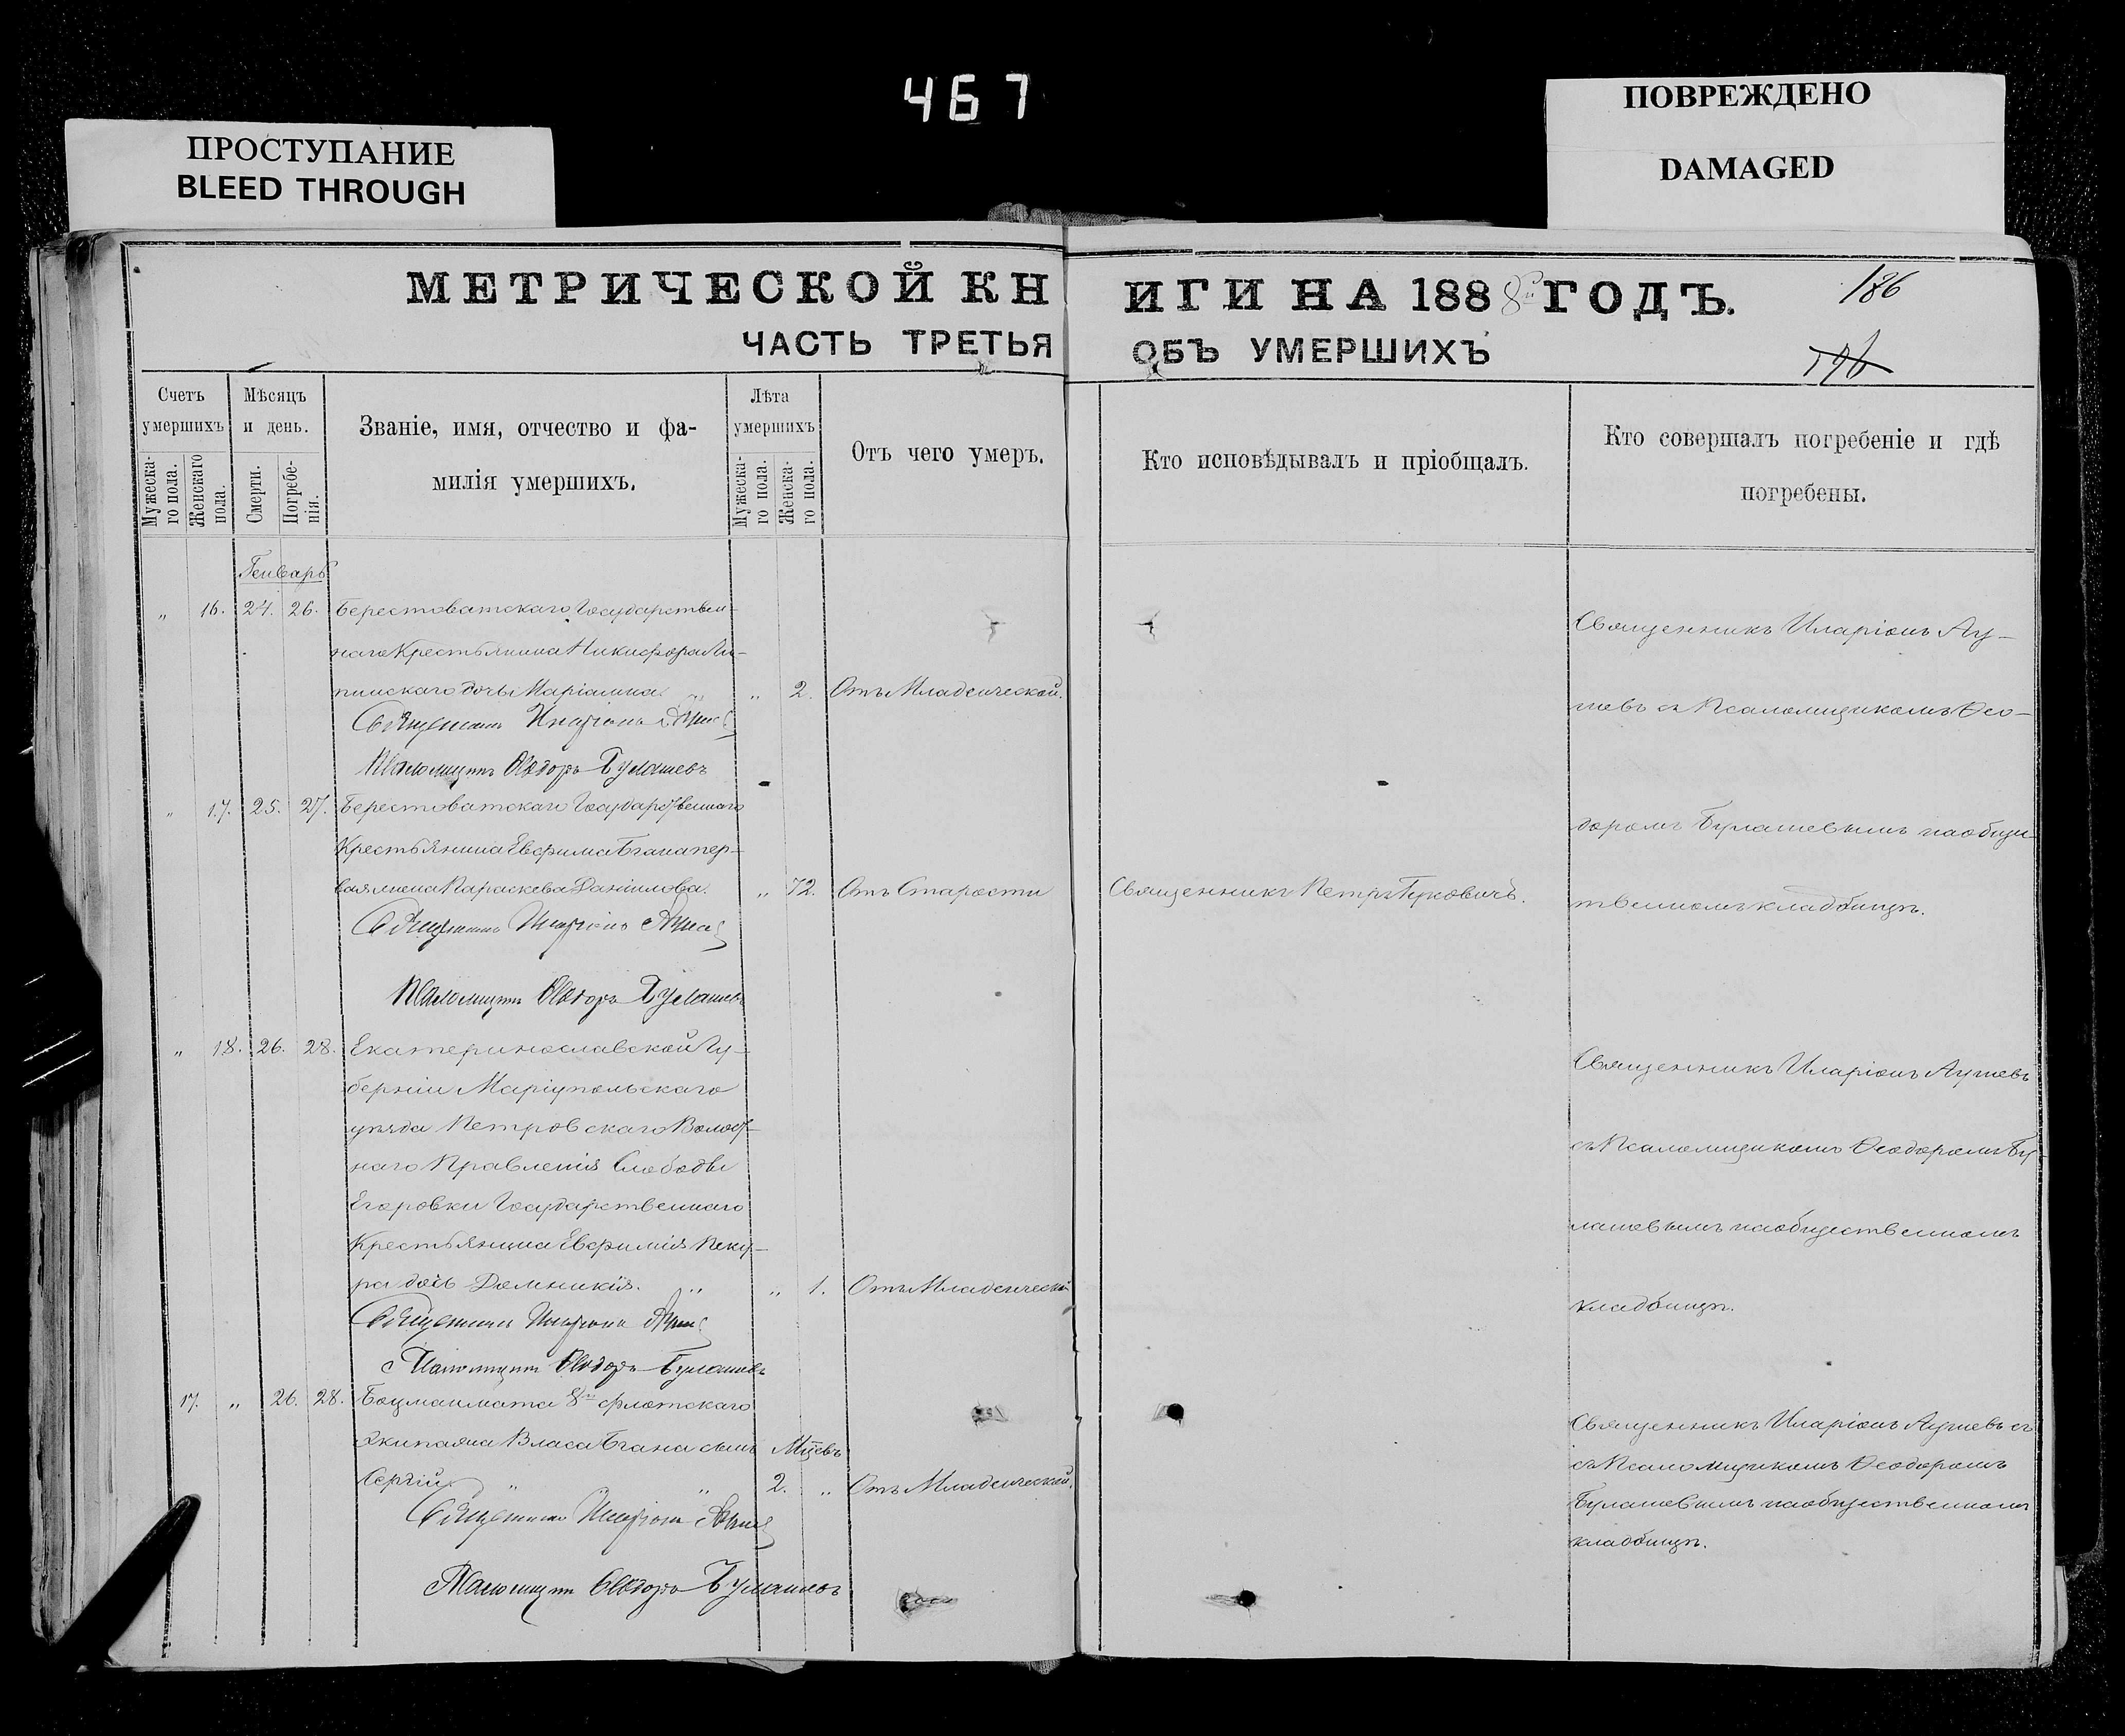 467
ПРОСТУПАНИЕ
BLEED THROUGH
ПОВРЕЖДЕНО
DAMAGED
МЕТРИЧЕСКОЙ КНИГИ НА 1888й ГОДЪ.
186
ЧАСТЬ ТРЕТЬЯ ОБЪ УМЕРШИХЪ
Счетъ умершихъ
Мужеска-го пола.
Женскаго пола.
Мѣсяцъ и день.
Смерти.
Погребе-нія.
Званіе, имя, отчество и фа-
милія умершихъ.
Лѣта умершихъ
Мужеска-го пола.
Женска-го пола.
Отъ чего умеръ.
Кто исповѣдывалъ и пріобщалъ.
Кто совершалъ погребеніе и гдѣ
погребены.
Генварь
" 16. 24. 26. Берестоватскаго Государствен-
наго Крестьянина Никифора Ли-
пинскаго дочь Маріамна " 2. Отъ Младенческой.
Священникъ Иларіонъ
Псаломщикъ Ѳеодоръ Булашевъ
Священникъ Иларіонъ
съ Псаломщикомъ Ѳео-
доромъ Булашевымъ на общес-
твенномъ кладбищѣ.
" 17. 25. 27. Берестоватскаго Государственнаго
Крестьянина Евфима Бгана пер-
вая жена Параскева Данилова. " 72. Отъ Старости Священникъ Петръ
Священникъ Иларіонъ
Псаломщикъ Ѳеодоръ Булашевъ
" 18. 26. 28. Екатеринославской Гу-
берніи Маріупольскаго
уѣзда Петровскаго Волост-
наго Правленія Слободы
Егоровки Государственнаго
Крестьянина Евфимія Пеку-
ра дочь Домникія. " " 1. Отъ Младенческой
Священникъ Иларіонъ
Псаломщикъ Ѳеодоръ Булашевъ
Священникъ Иларіонъ
съ Псаломщикомъ Ѳеодоромъ Бу-
лашевымъ на общественномъ
кладбищѣ.
17. " 26. 28. Боцманмата 8го флотскаго
экипажа Власа Бгана сынъ Мцевъ
Сергій " " 2. " Отъ Младенческой.
Священникъ Иларіонъ
Псаломщикъ Ѳеодоръ Булашевъ
Священникъ Иларіонъ съ
съ Псаломщикомъ Ѳеодоромъ
Булашевымъ на общественномъ
кладбищѣ.